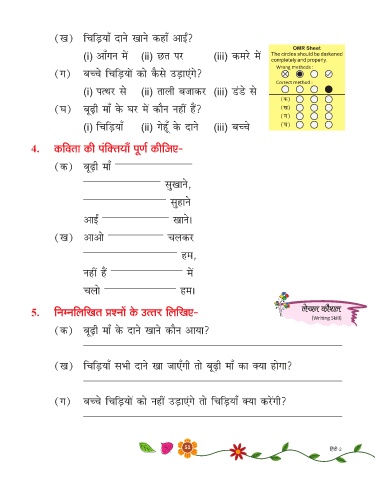 (ख) चिड़ियाँ दाने खाने कहाँ आईं?
(i) आँगन में (ii) छत पर (iii) कमरे में
(ग) बच्चे चिड़ियों को कैसे उड़ाएंगे?
(i) पत्थर से (ii) ताली बजाकर (iii) डंडे से
(घ) बूढ़ी माँ के घर में कौन नहीं हैं?
(i) चिड़ियाँ (ii) गेहूँ के दाने (iii) बच्चे
OMR Sheet
The circles should be darkened
completely and properly.
Wrong methods :
Correct method :
(क)
(ख)
(ग)
(घ)
4. कविता की पंक्तियाँ पूर्ण कीजिए-
(क) बूढ़ी माँ
सुखाने,
सुहाने
आईं खाने।
(ख) आओ चलकर
हम,
नहीं हैं में
चलो हम।
लेखन कौशल
(Writing Skill)
5. निम्नलिखित प्रश्नों के उत्तर लिखिए-
(क) बूढ़ी माँ के दाने खाने कौन आया?
(ख) चिड़ियाँ सभी दाने खा जाएँगी तो बूढ़ी माँ का क्या होगा?
(ग) बच्चे चिड़ियों को नहीं उड़ाएंगे तो चिड़ियाँ क्या करेंगी?
51
हिंदी-2